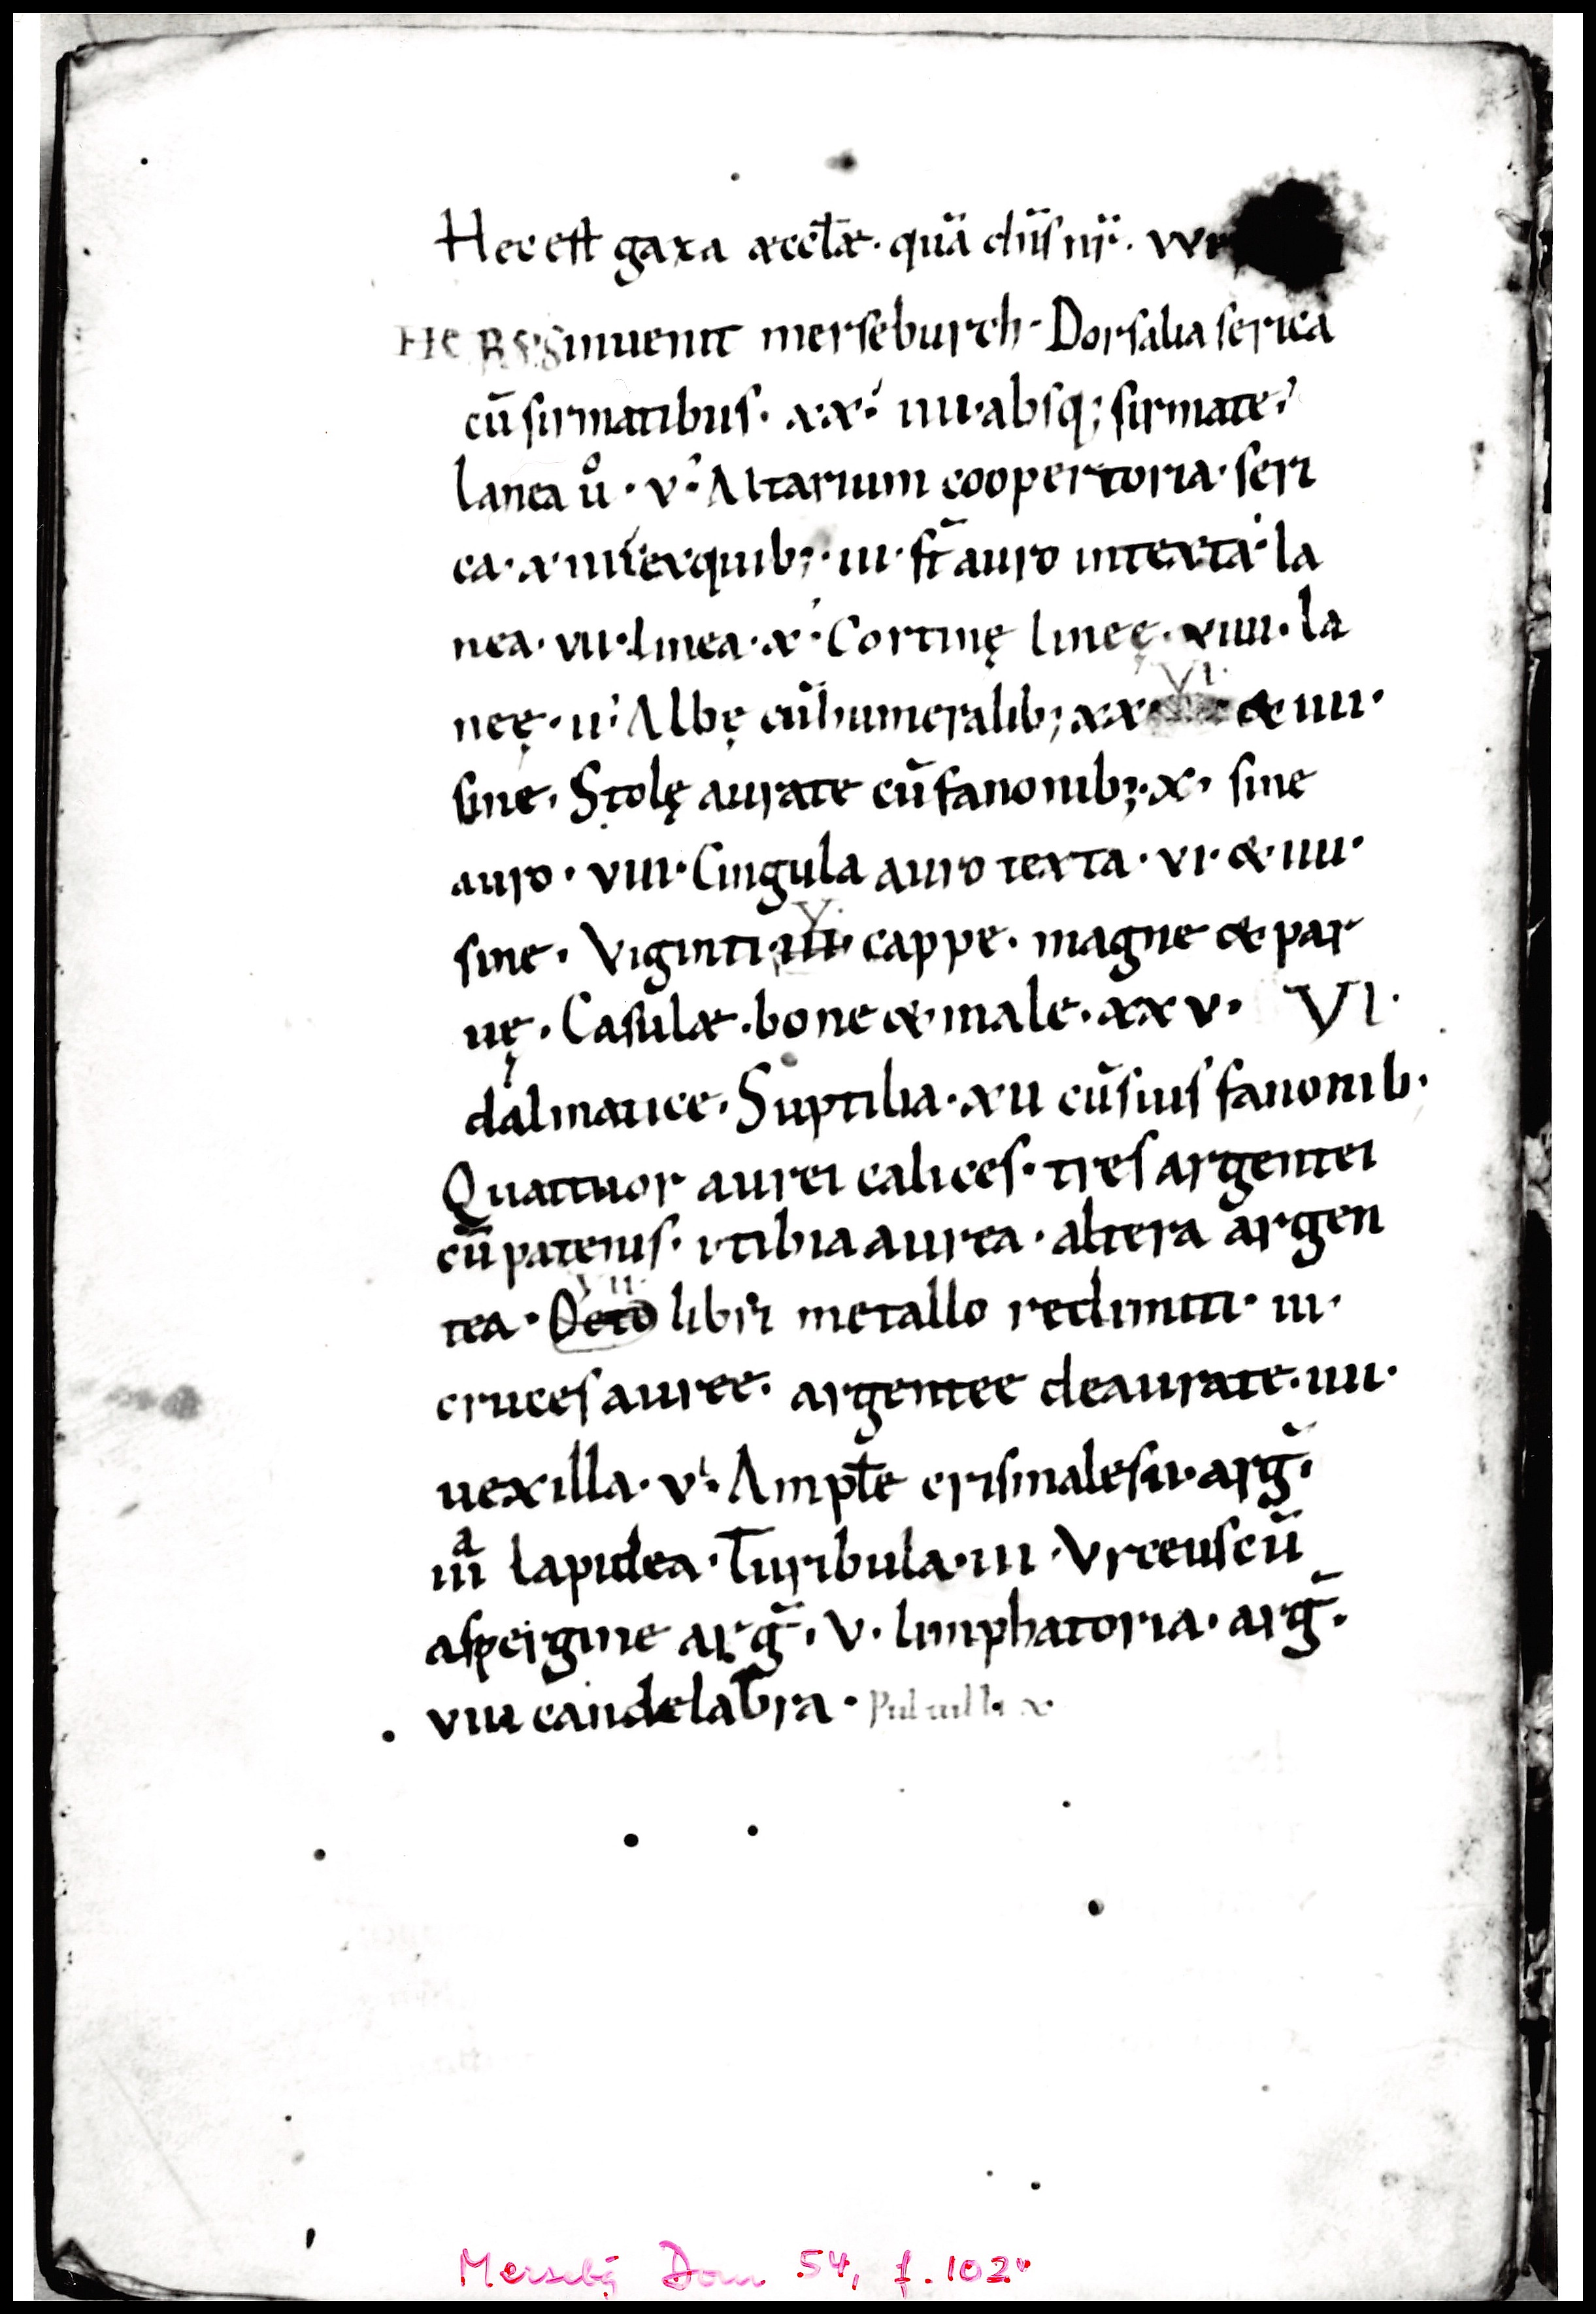 Hec est gaza æccl̄æ· quā dn̄s nr̄· We
inuenit merseburch· Dorsalia serica
cū sirmatibus· xx· iiii· absq; sirmate·
lanea ů· v· Altarium coopertoria· seri
ca· xiiii ex quib;· iii· st̄ auro intexta· la
nea· vii· linea· x· Cortinę lineę· xiiii· la
neę· ii· Albę cū humeralib; xx VI· & iiii·
sine· Stolę aurate cū fanonib;· x· sine
auro· viii· Cingula auro texta· vi· & iiii·
sine· Viginti· iii· V· cappe· magne & par
uę· Casulæ· bone & male· xxv· VI·
dalmatice· Suptilia· xii cū suis fanonib·
Quattuor aurei calices· tres argentei
cū patenis· i· tibia aurea· altera argen
tea· Octo VII· libri metallo redimiti· iii·
cruces auree· argentee deaurate· iiii·
uexilla· v· Ampl̄le crismales ii· arḡ·
iiiᵃ lapidea· Turibula· iii· Vrceus cū
aspergine arḡ· V· limphatoria· arḡ·
viii candelabra· Puluilli· x
Mersebg Dom 54, f. 102ᵛ